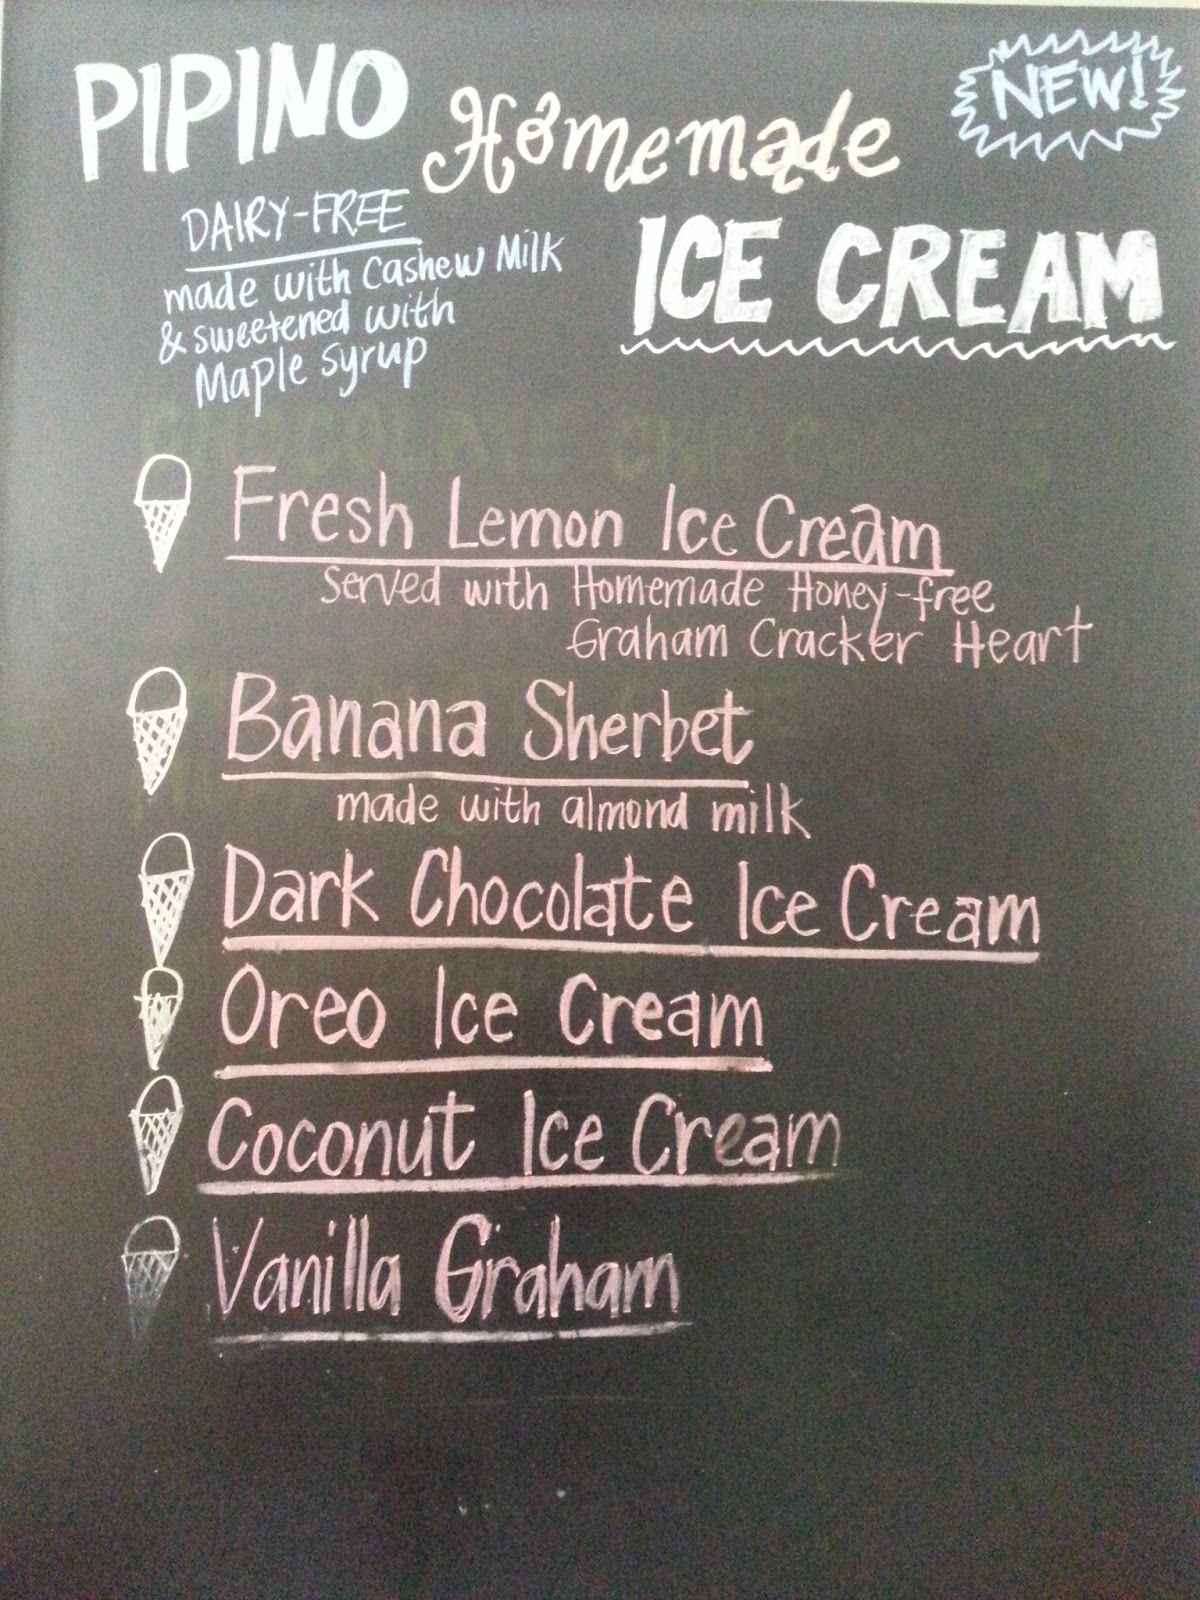 PIPINO Homemade
NEW!
ICE CREAM
DAIRY-FREE
made with Cashew Milk
& sweetened with
Maple Syrup
Fresh Lemon Ice Cream
Served with Homemade Honey-free
Graham Cracker Heart
Banana Sherbet
made with almond milk
Dark Chocolate Ice Cream
Oreo Ice Cream
Coconut Ice Cream
Vanilla Graham